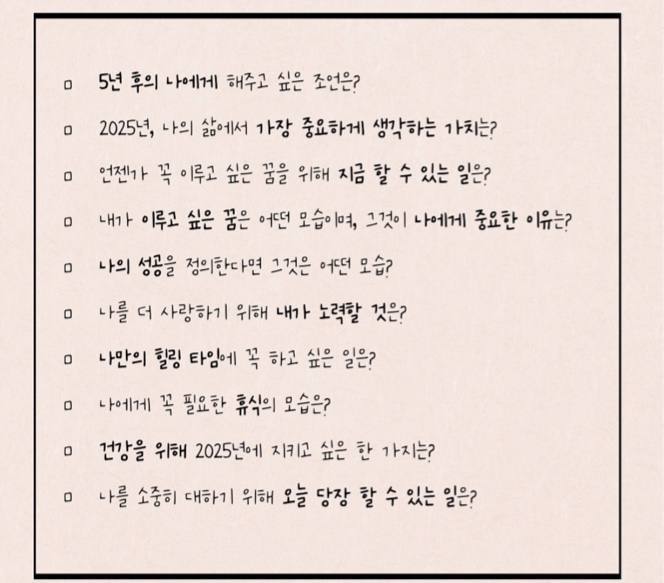 5년 후의 나에게 해주고 싶은 조언은?
2025년, 나의 삶에서 가장 중요하게 생각하는 가치는?
언젠가 꼭 이루고 싶은 꿈을 위해 지금 할 수 있는 일은?
내가 이루고 싶은 꿈은 어떤 모습이며, 그것이 나에게 중요한 이유는?
나의 성공을 정의한다면 그것은 어떤 모습?
나를 더 사랑하기 위해 내가 노력할 것은?
나만의 힐링 타임에 꼭 하고 싶은 일은?
나에게 꼭 필요한 휴식의 모습은?
건강을 위해 2025년에 지키고 싶은 한 가지는?
나를 소중히 대하기 위해 오늘 당장 할 수 있는 일은?